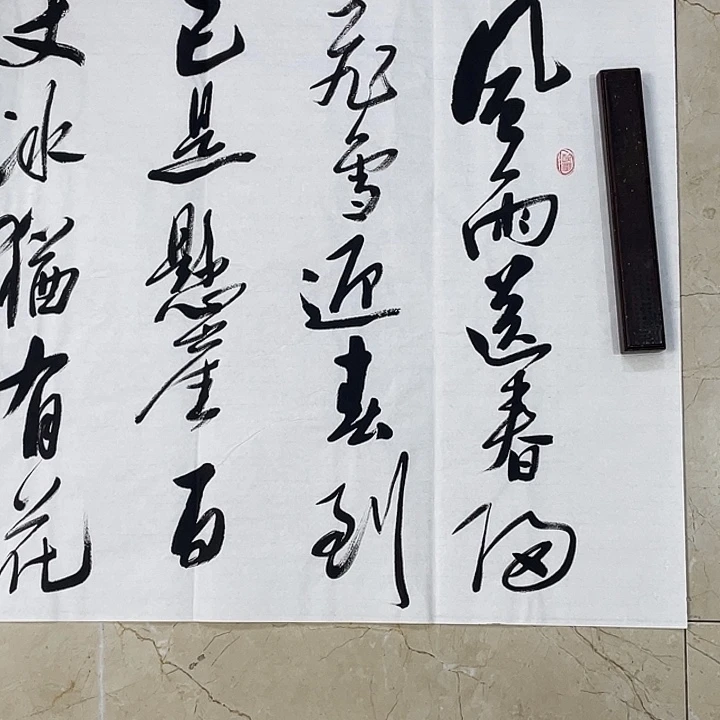 風雨送春歸
飛雪迎春到
已是懸崖百
丈冰猶有花